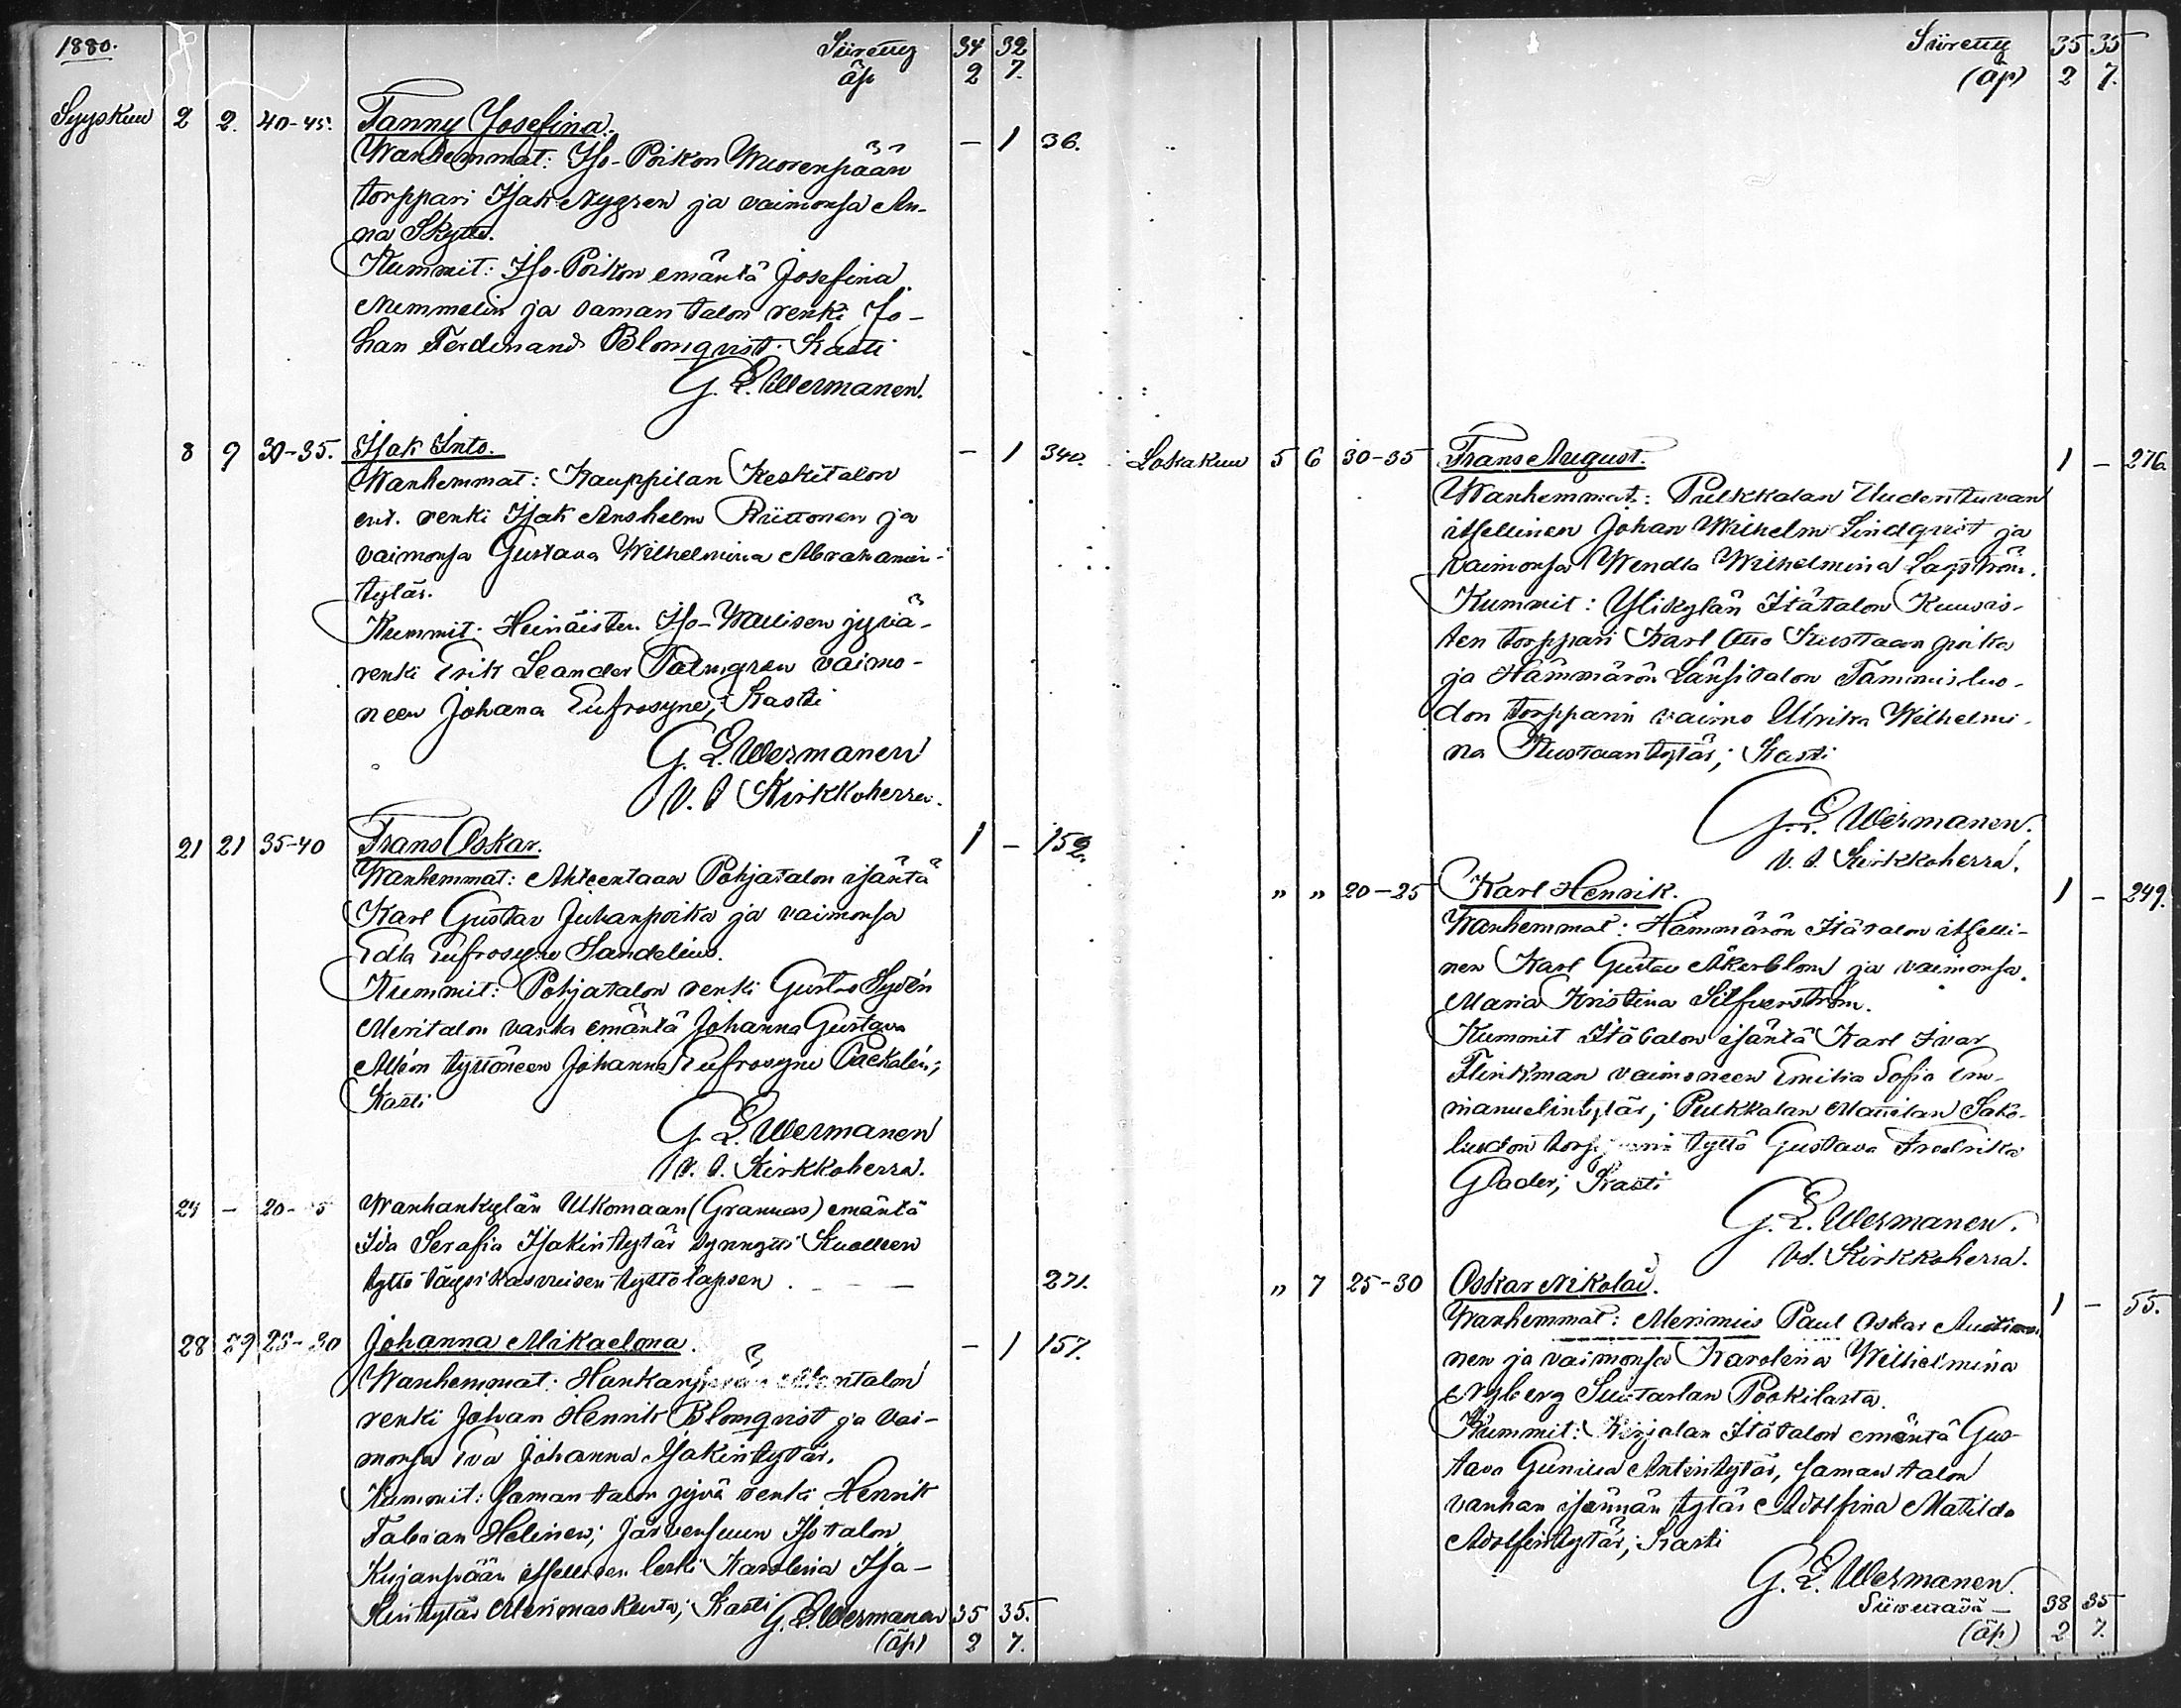 1880.
Siirettu 34 32
äp 2 7.
Syyskuu 2 2. 40-45. Fanny Josefina. — 1 36.
Wanhemmat: Iso-Poikon Wuorenpään
torppari Isak Nygren ja vaimonsa An-
na Skyttä.
Kummit: Iso-Poikon emäntä Josefina
Nummelin ja saman talon renki Jo-
han Ferdinand Blomqvist. Kasti
G. E. Wermanen.
8 9 30-35. Isak Into. — 1 340.
Wanhemmat: Kauppilan Keskitalon
ent. renki Isak Anshelm Riittonen ja
vaimonsa Gustava Wilhelmina Abrahamin-
tytär.
Kummit: Heinäisten Iso-Wallisen jyvä-
renki Erik Leander Palmgren vaimo-
neen Johana Eufrosyne; Kasti
G. E. Wermanen
V. t. Kirkkoherra.
21 21 35-40 Frans Oskar. 1 — 152.
Wanhemmat: Ahteentaan Pohjatalon isäntä
Karl Gustav Juhanpoika ja vaimonsa
Edla Eufrosyne Sandelius.
Kummit: Pohjatalon renki Gustav Sydén
Meritalon vanha emäntä Johanna Gustava
tyttöneen Johanna Eufrosyne
Kasti
G. E. Wermanen
V. t. Kirkkoherra.
24 — 20- 5 Wanhankylän Ukomaan (Grannas) emäntä
Ida Serafia Isakintytär synnytti kuolleen
tyttö täysikasvuisen tyttölapsen — 271.
28 29 25-30 Johanna Mikaelina. — 1 157.
Wanhemmat:
renki Johan Henrik Blomqvist ja vai-
monsa Eva Johanna Isakintytär.
Kummit: saman talon jyvä renki Henrik
Fabian Helinen; Järvensuun Isotalon
Kujanpään itsellisen leski Karolina Isa-
kintytär Merimaskusta; Kasti G. E. Wermanen 35 35.
(äp) 2 7.
Siirettu 35 35
(äp) 2 7.
Lokakuu 5 6 30-35 Frans August. 1 — 276.
Wanhemmat: Pulkkalan Uudentuvan
itsellinen Johan Wilhelm Lindqvist ja
vaimonsa Wendla Wilhelmina Lagström.
Kummit: Ylikylän Itätalon Kuuvis-
ten torppari Karl Otto Kustaan poika
ja Hämmärön Länsitalon Tammisluo-
don torpparin vaimo Ulrika Wilhelmi-
na Kustaantytär; Kasti
G. E. Wermanen.
V. t. Kirkkoherra.
" " 20-25 Karl Henrik. 1 — 249.
Wanhemmat: Hämmärön Itätalon itselli-
nen Karl Gustav Åkerblom ja vaimonsa
Maria Kristina Silfverström.
Kummit Itätalon isäntä Karl Ivar
Flinkman vaimoneen Emilia Sofia Em-
manuelintytär; Pulkkalan Mattilan Salo-
luodon torpparin tyttö Gustava Fredrika
Glader; Kasti
G. E. Wermanen.
Vt. Kirkkoherra.
" 7 25-30 Oskar Nikolai. 1 — 55.
Wanhemmat: Merimies Paul Oskar
nen ja vaimonsa Karolina Wilhelmina
Nyberg Suutarlan Pookilasta.
Kummit: Kirjalan Itätalon emäntä Gus-
tava Gunilla Antintytär, saman talon
vanhan isännän tytär Adolfina Matilda
Adolfintytär; Kasti
G. E. Wermanen.
Siirrettävä — 38 35
(äp) 2 7.